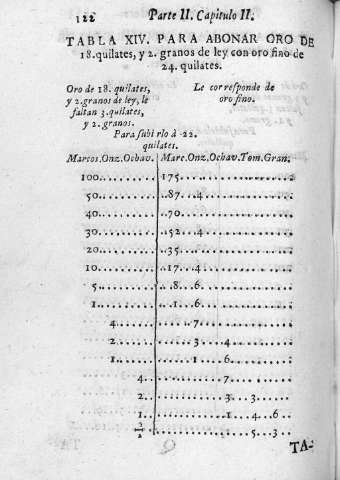 122 Parte II. Capitulo II.
TABLA XIV. PARA ABONAR ORO DE
18. quilates, y 2. granos de ley con oro fino de
24. quilates.
Oro de 18. quilates, Le corresponde de
y 2. granos de ley, le oro fino.
faltan 3. quilates,
y 2. granos.
Para subirlo à 22.
quilates.
Marcos.Onz.Ochav. Marc.Onz.Ochav.Tom.Gran.
100 175
50 87 4
40 70
30 152 4
20 35
10 17 4
5 8 6
1 1 6
4 7
2 3 4
1 1 6
4 7
2 3 3
1 1 4 6
1/2 5 3
TA- TA-